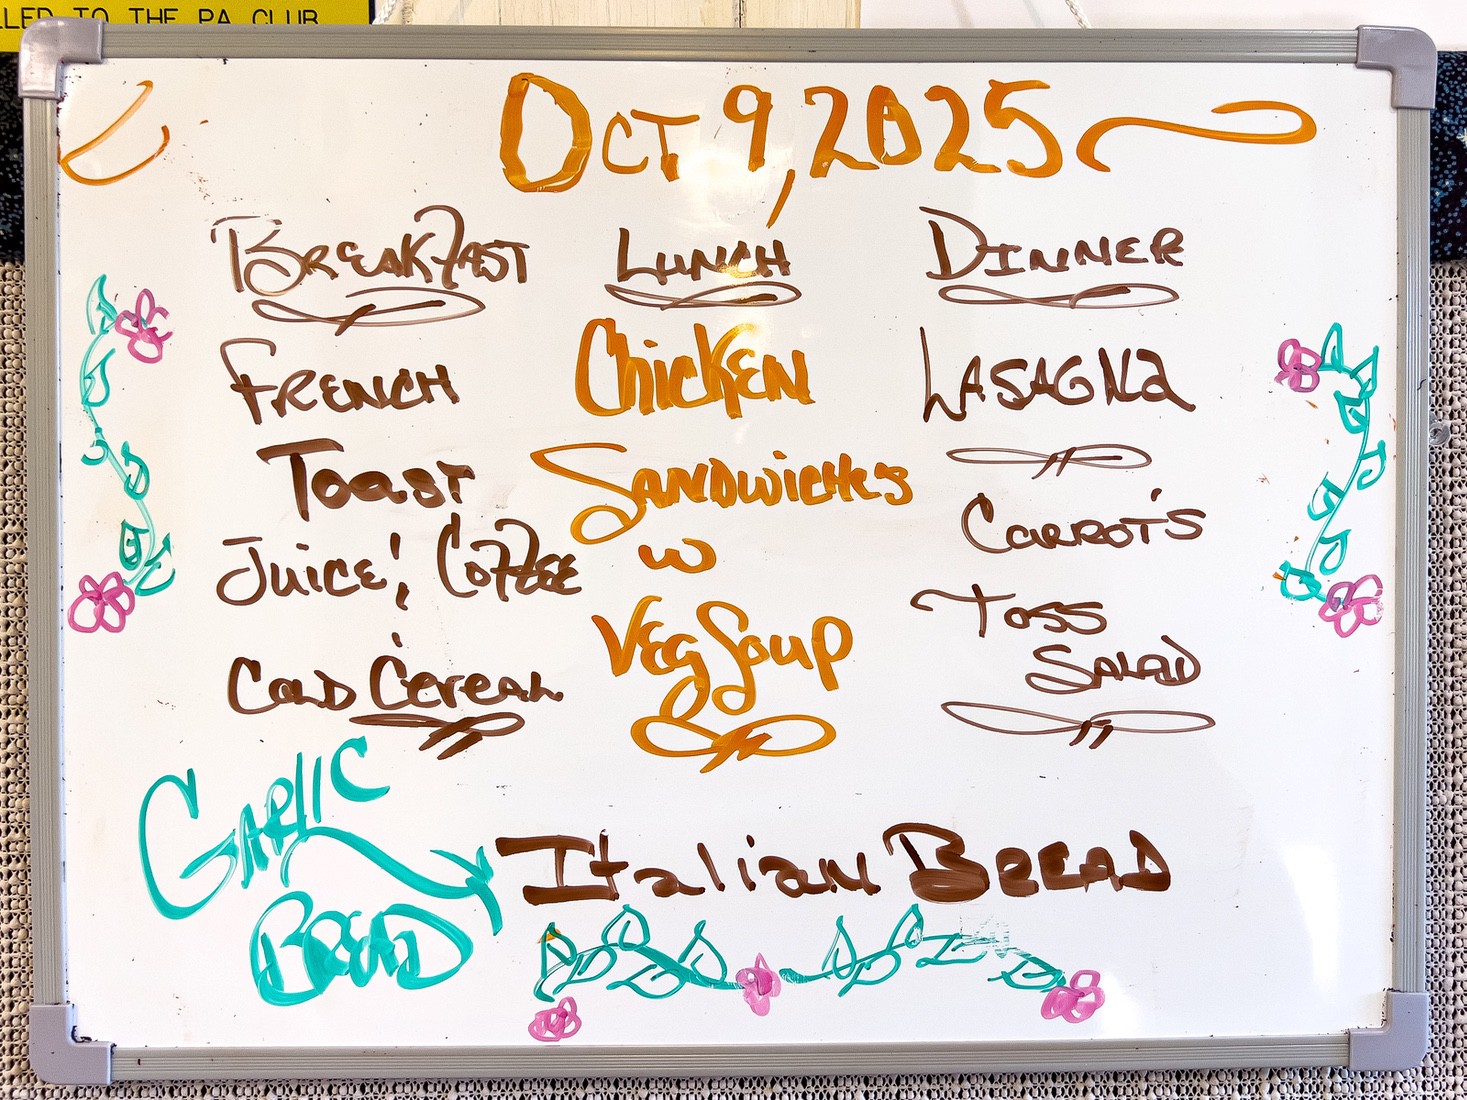 LLED TO THE PA CLUB
Oct 9, 2025
Breakfast
French
Toast
Juice! Coffee
Cold Cereal
Lunch
Chicken
Sandwiches
w
Veg Soup
Dinner
Lasagna
Carrot's
Toss
Salad
Garlic
Bread
Italian Bread